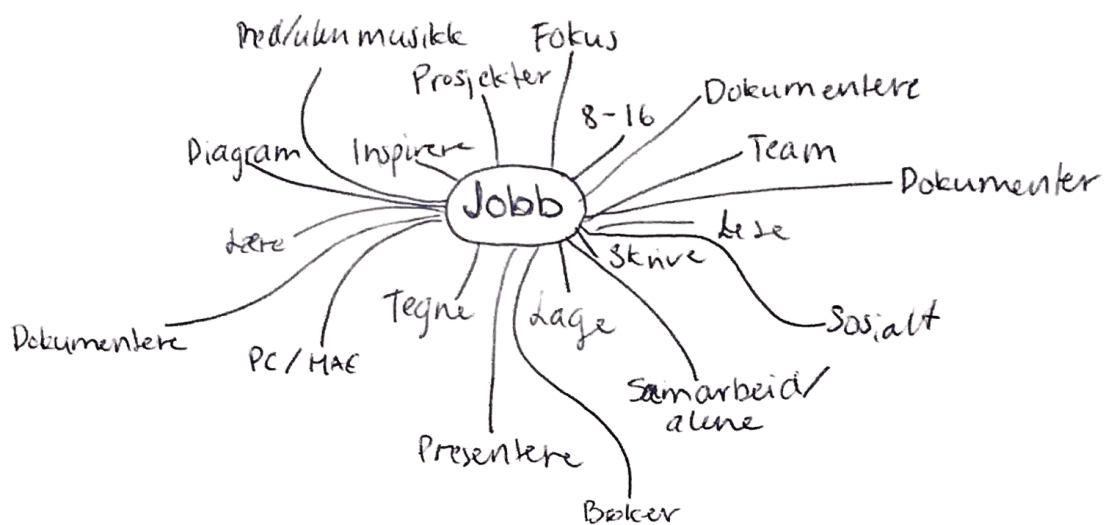 Med/uten musikk
Fokus
Prosjekter
Dokumentere
8-16
Diagram
Inspirere
Team
Dokumenter
Jobb
Lære
Lese
Skrive
Tegne
Lage
Sosialt
Dokumentere
PC/MAC
Samarbeid/
alene
Presentere
Bøker